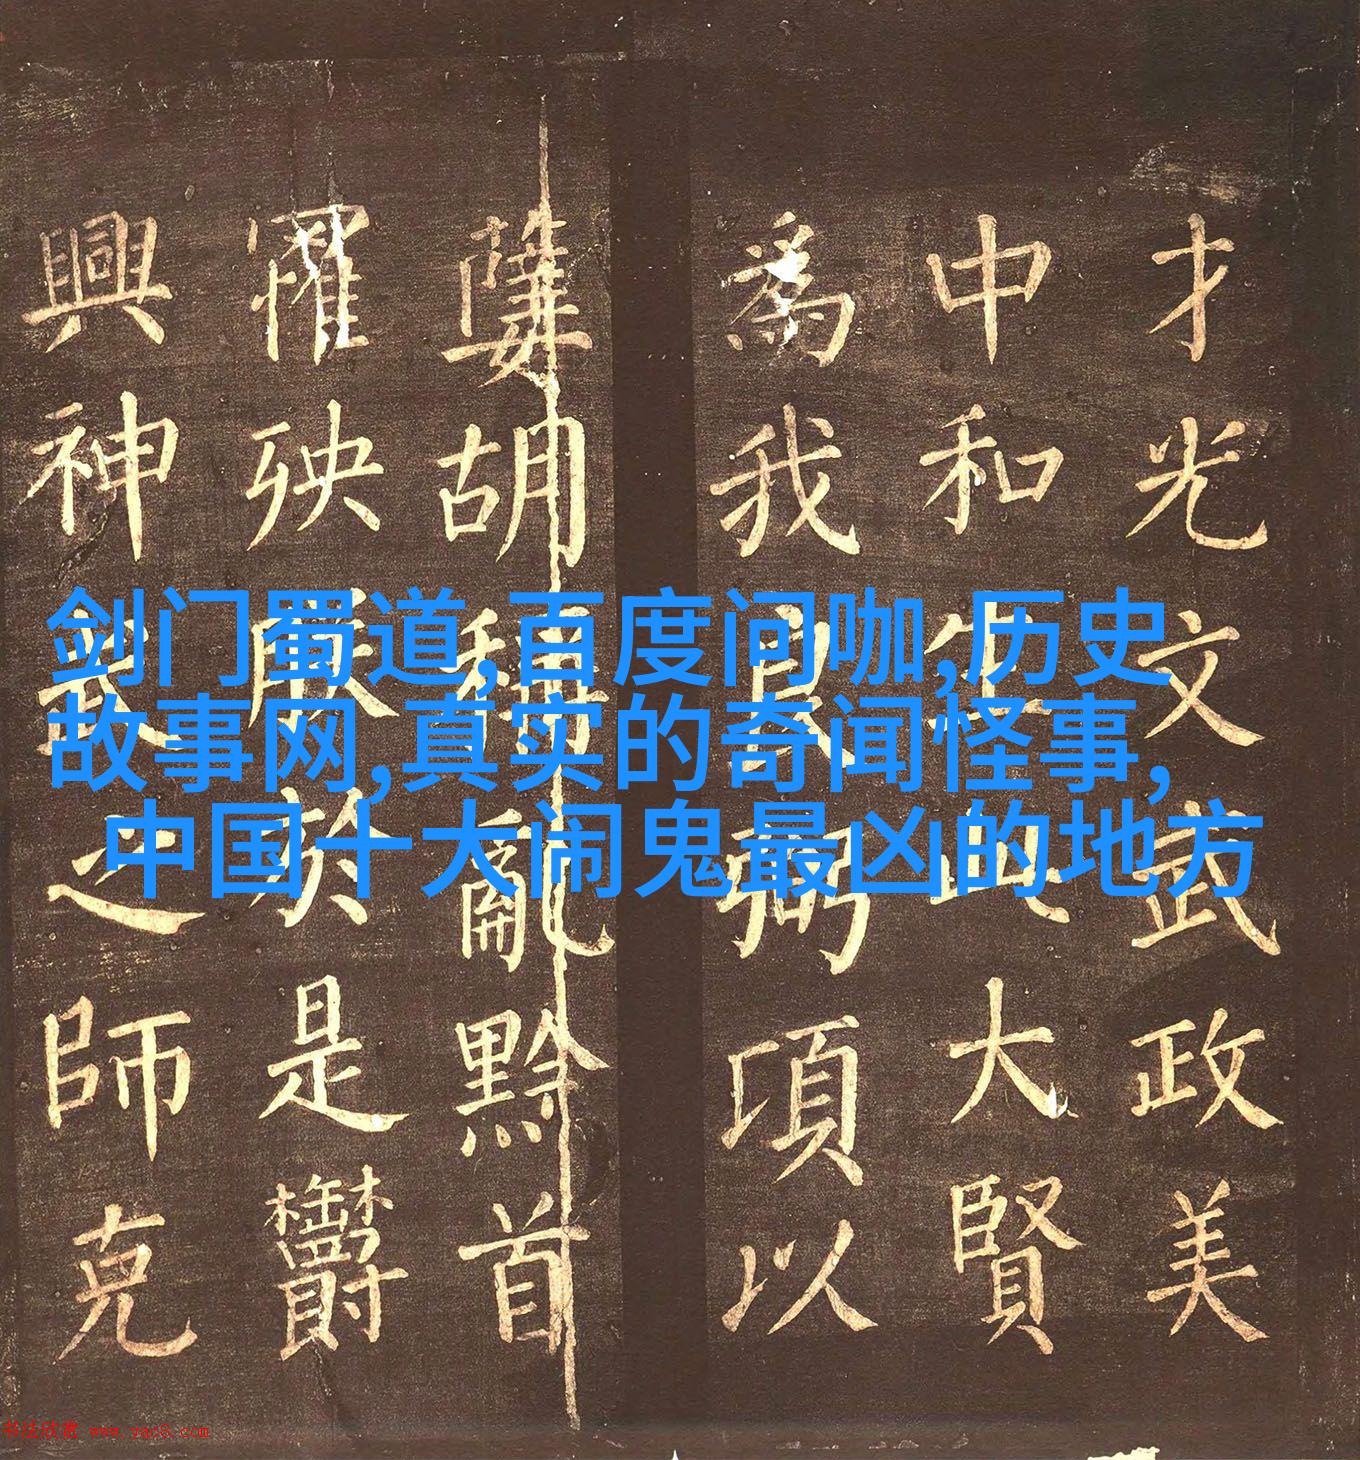 才光文武政美
中和生此大賢
爲我良弼項以
胡稱亂黔首
罹殃於是
興神武之師克
剑门蜀道,百度问咖,历史
故事网,真实的奇闻怪事,
中国十大闹鬼最凶的地方
书法欣赏 www.yac8.com